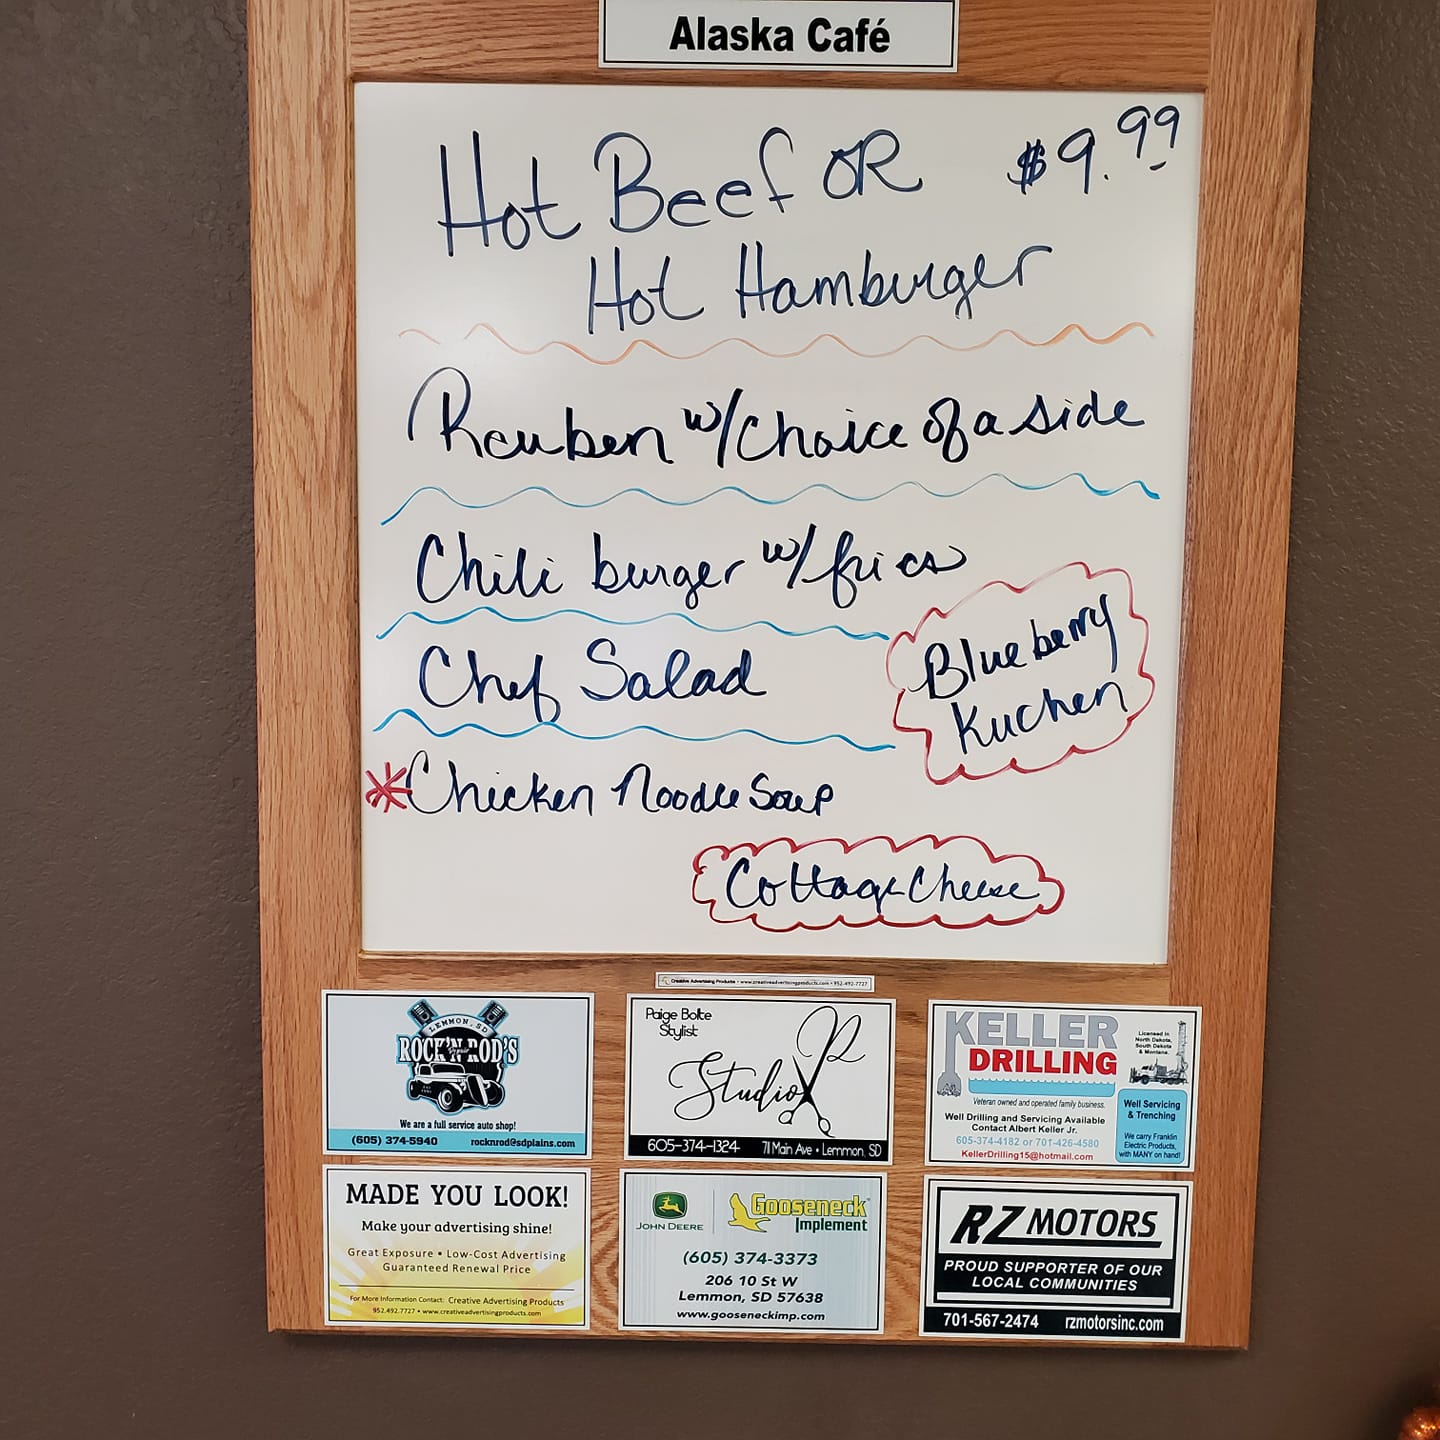 Alaska Café
Hot Beef OR $9.99
Hot Hamburger
Reuben w/choice of a side
Chili burger w/fries
Chef Salad
Blueberry
Kuchen
*Chicken Noodle Soup
Cottage Cheese
Creative Advertising Products • www.creativeadvertisingproducts.com • 952-492-7727
LEMMON, SD
ROCK'N ROD'S
Repair
We are a full service auto shop!
(605) 374-5940 rocknrod@sdplains.com
Paige Bolte
Stylist
Studio P
605-374-1324 711 Main Ave • Lemmon, SD
KELLER
DRILLING
Licensed in
North Dakota,
South Dakota
& Montana.
Veteran owned and operated family business.
Well Drilling and Servicing Available
Contact Albert Keller Jr.
605-374-4182 or 701-426-4580
KellerDrilling15@hotmail.com
Well Servicing
& Trenching
We carry Franklin
Electric Products,
with MANY on hand!
MADE YOU LOOK!
Make your advertising shine!
Great Exposure • Low-Cost Advertising
Guaranteed Renewal Price
For More Information Contact: Creative Advertising Products
952.492.7727 • www.creativeadvertisingproducts.com
JOHN DEERE
Gooseneck
Implement
(605) 374-3373
206 10 St W
Lemmon, SD 57638
www.gooseneckimp.com
RZ MOTORS
PROUD SUPPORTER OF OUR
LOCAL COMMUNITIES
701-567-2474 rzmotorsinc.com